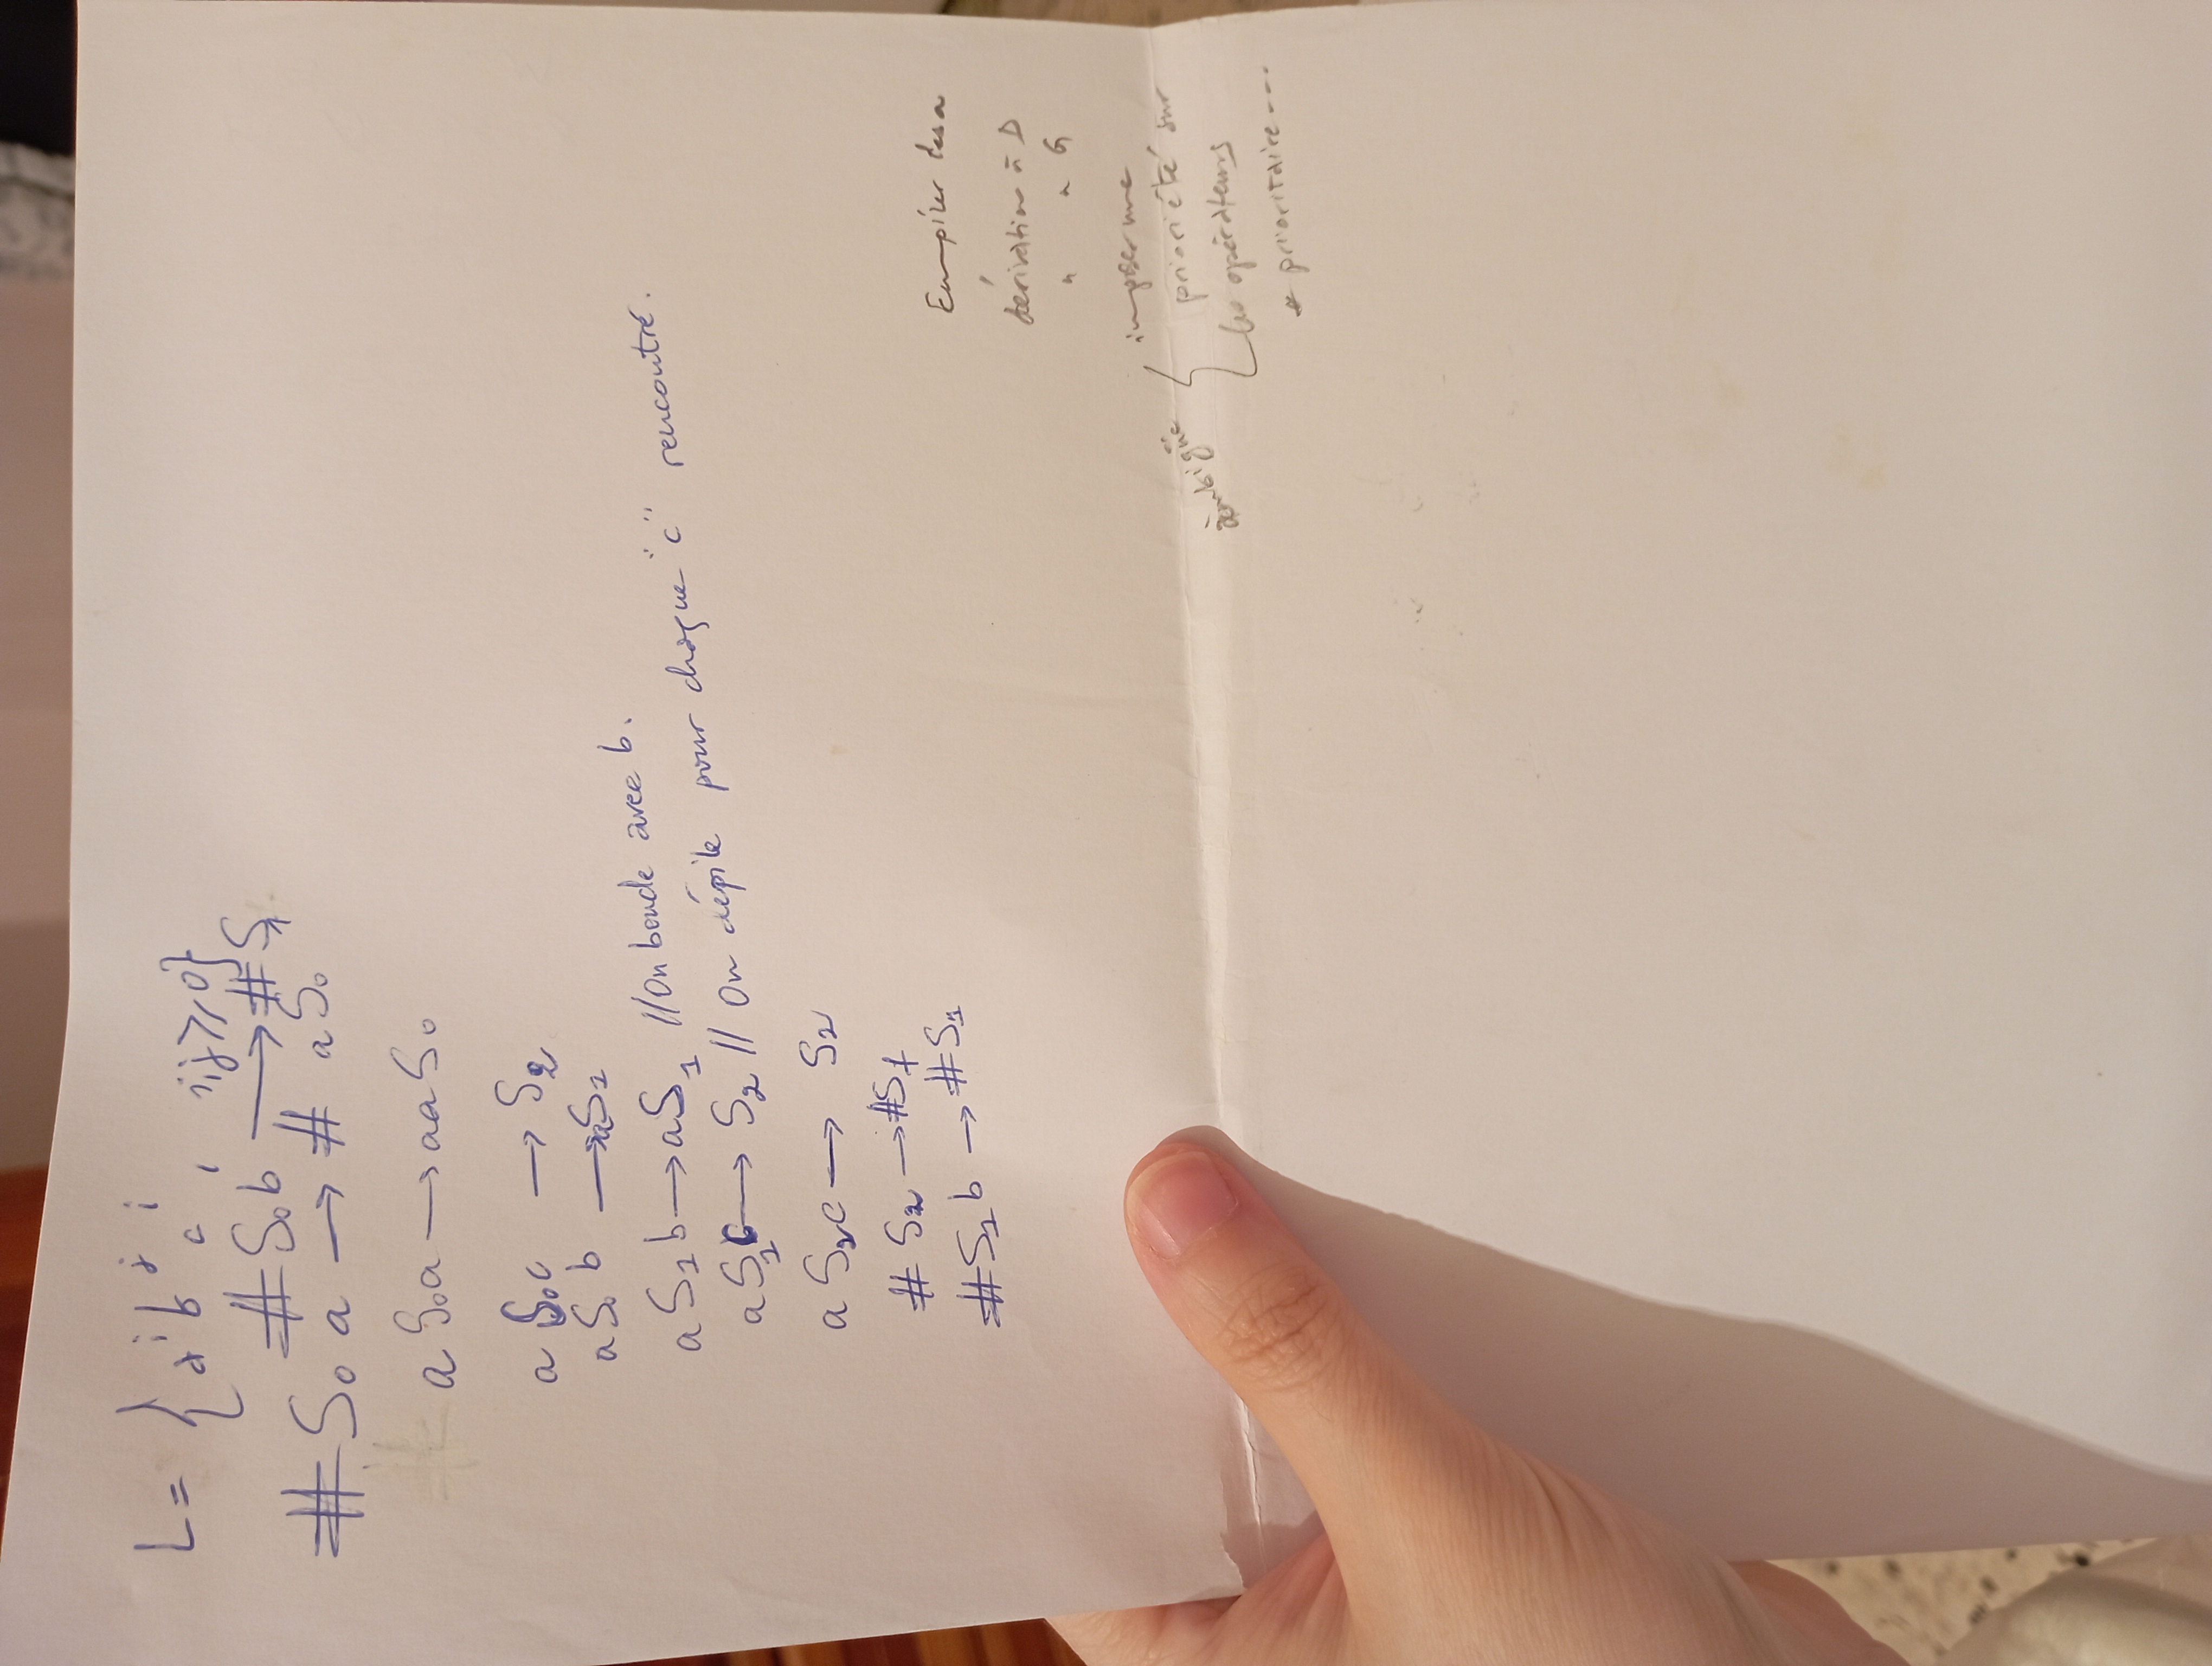 L = { aⁱ bʲ cⁱ , i,j ⩾ 0}
# S₀ b → # S₁
# S₀ a → # a S₀
a S₀ a → a a S₀
a S₀ c → S₂
a S₀ b → a S₁
a S₁ b → a S₁ // On boucle avec b.
a S₁ c → S₂ // On dépile pour chaque "c" rencontré.
a S₂ c → S₂
# S₂ → # Sf
# S₁ b → # S₁
Empiler les a
dérivation à D
" " G
ambigüe
imposer une
priorité sur
les opérateurs
* prioritaire ---